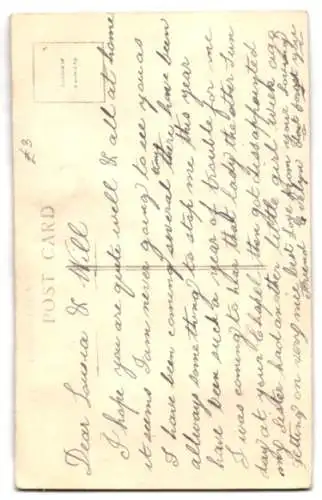 £3
POST CARD
Dear Lousia & Will
I hope you are quite well & all at home
it seems I am never going to see you as
I have been coming several times there have been
allways something to stop me this year
have been such a year of trouble for me
I was coming to hear that lady the other Sun
day at your Chapel then got dissapointed
my Sister had another little girl week ago
Getting on very nice best love from your loving
friend Evelyn